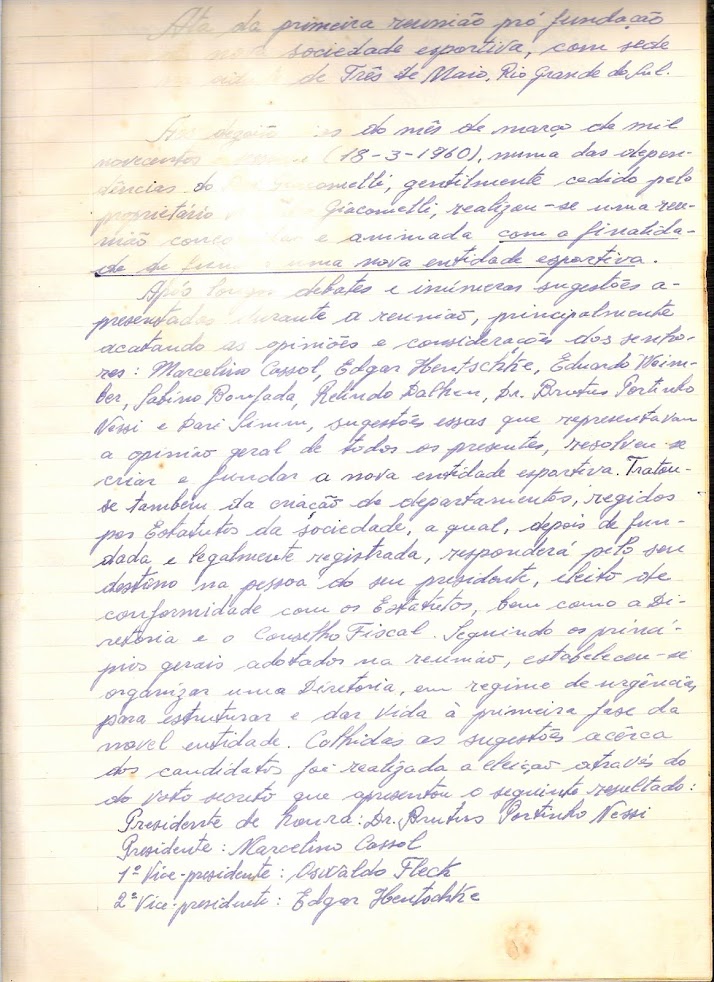 Ata da primeira reunião pró fundação
sociedade esportiva, com sede
de Três de Maio, Rio Grande do Sul.
do mês de março de mil
novecentos e (18-3-1960), numa das depen-
dências do Giacomelli, gentilmente cedido pelo
proprietário Giacomelli, realizou-se uma reu-
nião e animada com a finalida-
de de uma nova entidade esportiva.
Após debates e inúmeras sugestões a-
presentadas durante a reunião, principalmente
acatando as opiniões e considerações dos senho-
res: Marcelino Cassol, Edgar Hentschke, Eduardo
Sabino Bonfada, Relindo Dr. Brutus Portinho
Nessi e Dari Simm, sugestões essas que representavam
a opinião geral de todos os presentes, resolveu-se
criar e fundar a nova entidade esportiva. Tratou-
se também da criação de departamentos, regidos
por Estatutos da sociedade, a qual, depois de fun-
dada e legalmente registrada, responderá pelo seu
destino na pessoa do seu presidente, eleito de
conformidade com os Estatutos, bem como a Di-
retoria e o Conselho Fiscal. Seguindo os princí-
pios gerais adotados na reunião, estabeleceu-se
organizar uma Diretoria, em regime de urgência,
para estruturar e dar vida à primeira fase da
novel entidade. Colhidas as sugestões acêrca
dos candidatos foi realizada a eleição através do
do voto secreto que apresentou o seguinte resultado:
Presidente de honra: Dr. Brutus Portinho Nessi
Presidente: Marcelino Cassol
1º Vice-presidente: Osvaldo Fleck
2º Vice-presidente: Edgar Hentschke